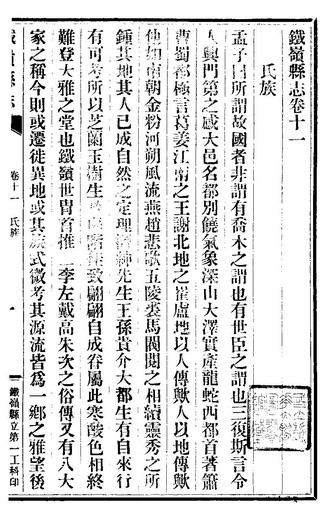 鐵嶺縣志卷十一
氏族
孟子曰所謂故國者非謂有喬木之謂也有世臣之謂也三復斯言令
人興門第之感大邑名都別饒氣象深山大澤實產龍蛇西都首著蕭
曹蜀都極言葛姜江南之王謝北地之崔盧地以人傳歟人以地傳歟
他如南朝金粉河朔風流燕趙悲歌五陵裘馬閥閱之相續靈秀之所
鍾其地其人已成自然之定理 紳先生王孫貴介大都生有自來行
有可考所以芝蘭玉樹生 致翩翩自成眷屬此寒酸色相終
難登大雅之堂也鐵嶺世冑首推 李左戴高朱次之俗傳又有八大
家之稱今則或遷徙異地或其族式微考其源流皆爲一鄉之雅望後
鐵嶺縣志
卷十一 氏族
一
鐵嶺縣立第一工科印